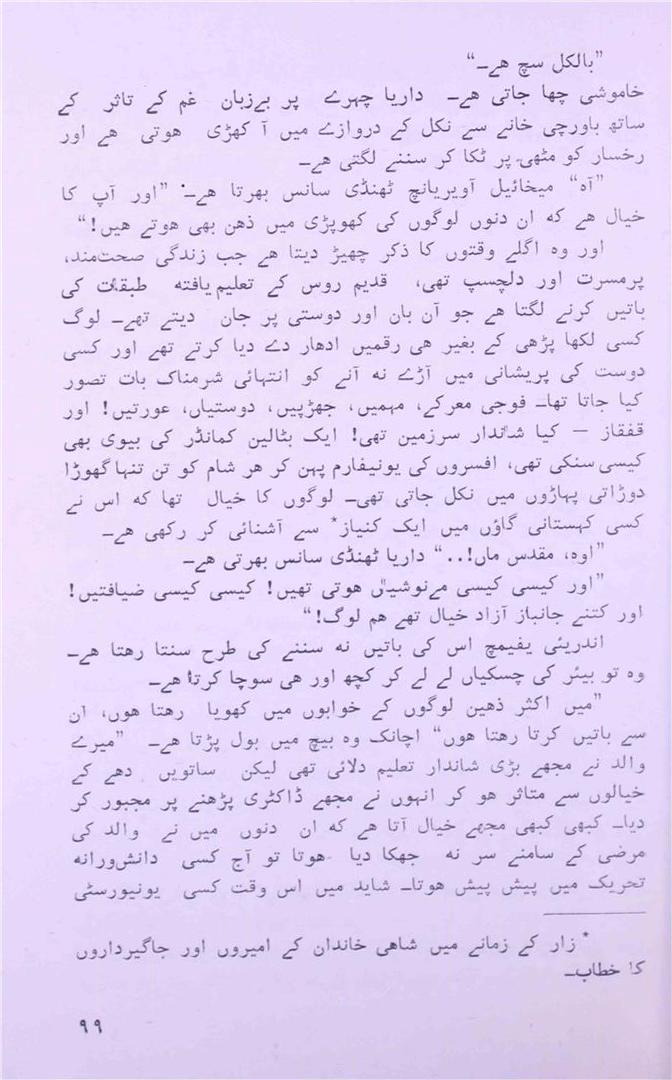 ”بالکل سچ ہے۔“
خاموشی چھا جاتی ہے۔ داریا چہرے پر بےزبان غم کے تاثر کے
ساتھ باورچی خانے سے نکل کے دروازے میں آ کھڑی ہوتی ہے اور
رخسار کو مٹھی پر ٹکا کر سننے لگتی ہے۔
”آہ“ میخائیل آویریانچ ٹھنڈی سانس بھرتا ہے۔ ”اور آپ کا
خیال ہے کہ ان دنوں لوگوں کی کھوپڑی میں ذہن بھی ہوتے ہیں!“
اور وہ اگلے وقتوں کا ذکر چھیڑ دیتا ہے جب زندگی صحت‌مند،
پرمسرت اور دلچسپ تھی، قدیم روس کے تعلیم یافتہ طبقات کی
باتیں کرنے لگتا ہے جو آن بان اور دوستی پر جان دیتے تھے۔ لوگ
کسی لکھا پڑھی کے بغیر ہی رقمیں ادھار دے دیا کرتے تھے اور کسی
دوست کی پریشانی میں آڑے نہ آنے کو انتہائی شرمناک بات تصور
کیا جاتا تھا۔ فوجی معرکے، مہمیں، جھڑپیں، دوستیاں، عورتیں! اور
قفقاز — کیا شاندار سرزمین تھی! ایک بٹالین کمانڈر کی بیوی بھی
کیسی سنکی تھی، افسروں کی یونیفارم پہن کر ہر شام کو تن تنہا گھوڑا
دوڑاتی پہاڑوں میں نکل جاتی تھی۔ لوگوں کا خیال تھا کہ اس نے
کسی کہستانی گاؤں میں ایک کنیاز* سے آشنائی کر رکھی ہے۔
”اوہ، مقدس ماں!..“ داریا ٹھنڈی سانس بھرتی ہے۔
”اور کیسی کیسی مےنوشیاں ہوتی تھیں! کیسی کیسی ضیافتیں!
اور کتنے جانباز آزاد خیال تھے ہم لوگ!“
اندریئی یفیمچ اس کی باتیں نہ سننے کی طرح سنتا رہتا ہے۔
وہ تو بیئر کی چسکیاں لے لے کر کچھ اور ہی سوچا کرتا ہے۔
”میں اکثر ذہین لوگوں کے خوابوں میں کھویا رہتا ہوں، ان
سے باتیں کرتا رہتا ہوں“ اچانک وہ بیچ میں بول پڑتا ہے۔ ”میرے
والد نے مجھے بڑی شاندار تعلیم دلائی تھی لیکن ساتویں دہے کے
خیالوں سے متاثر ہو کر انہوں نے مجھے ڈاکٹری پڑھنے پر مجبور کر
دیا۔ کبھی کبھی مجھے خیال آتا ہے کہ ان دنوں میں نے والد کی
مرضی کے سامنے سر نہ جھکا دیا ہوتا تو آج کسی دانش‌ورانہ
تحریک میں پیش پیش ہوتا۔ شاید میں اس وقت کسی یونیورسٹی
* زار کے زمانے میں شاہی خاندان کے امیروں اور جاگیرداروں
کا خطاب۔
۹۹